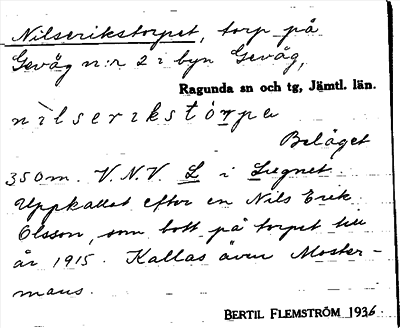 Nilserikstorpet, torp på
Gevåg n:r 2 i byn Gevåg,
Ragunda sn och tg, Jämtl. län.
nilserikstórpe
Beläget
350 m. V.N.V. L i Lugnet.
Uppkallat efter en Nils Erik
Olsson, som bott på torpet till
år 1915. Kallas även Moster-
mans.
BERTIL FLEMSTRÖM 1936